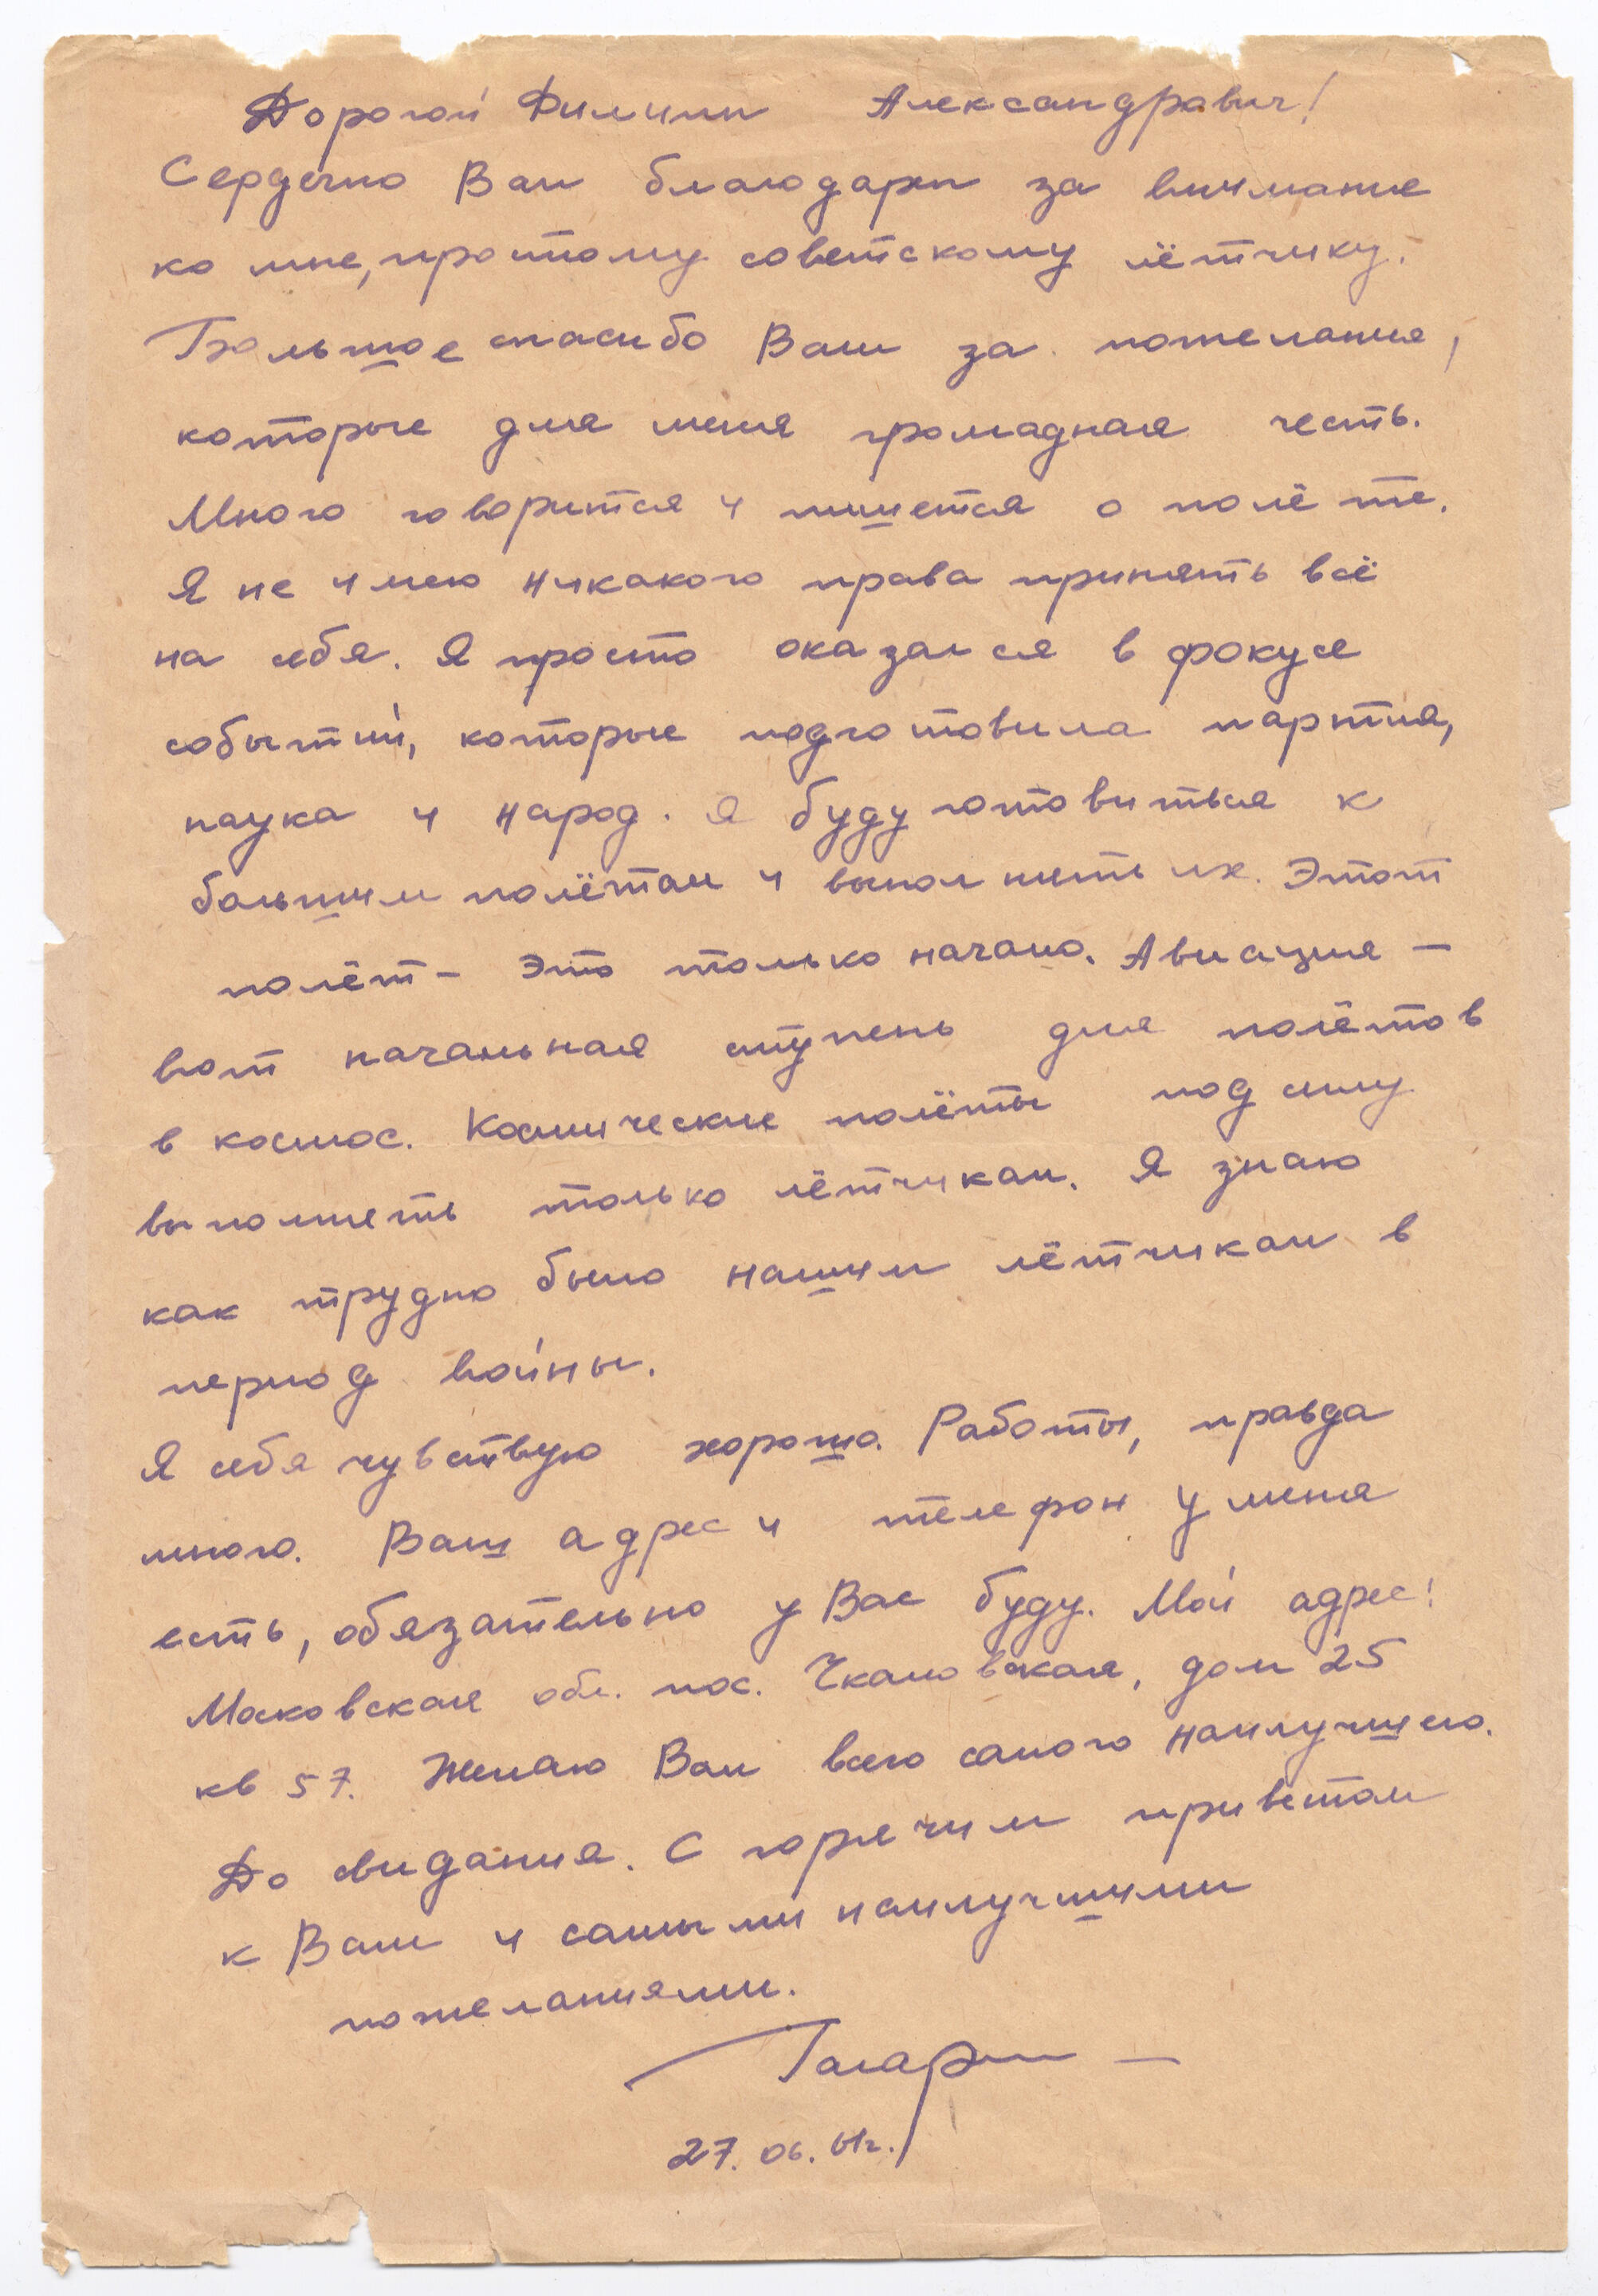 Дорогой Филипп Александрович!
Сердечно Вам благодарен за внимание
ко мне, простому советскому лётчику.
Большое спасибо Вам за пожелания,
которые для меня громадная честь.
Много говорится и пишется о полёте.
Я не имею никакого права принять всё
на себя. Я просто оказался в фокусе
событий, которые подготовила партия,
наука и народ. Я буду готовиться к
большим полётам и выполнять их. Этот
полёт - это только начало. Авиация -
вот начальная ступень для полётов
в космос. Космические полёты под силу
выполнять только лётчикам. Я знаю
как трудно было нашим лётчикам в
период войны.
Я себя чувствую хорошо. Работы, правда
много. Ваш адрес и телефон у меня
есть, обязательно у Вас буду. Мой адрес:
Московская обл. пос. Чкаловская, дом 25
кв 57. Желаю Вам всего самого наилучшего.
До свидания. С горячим приветом
к Вам и самыми наилучшими
пожеланиями.
Гагарин
27.06.61г.